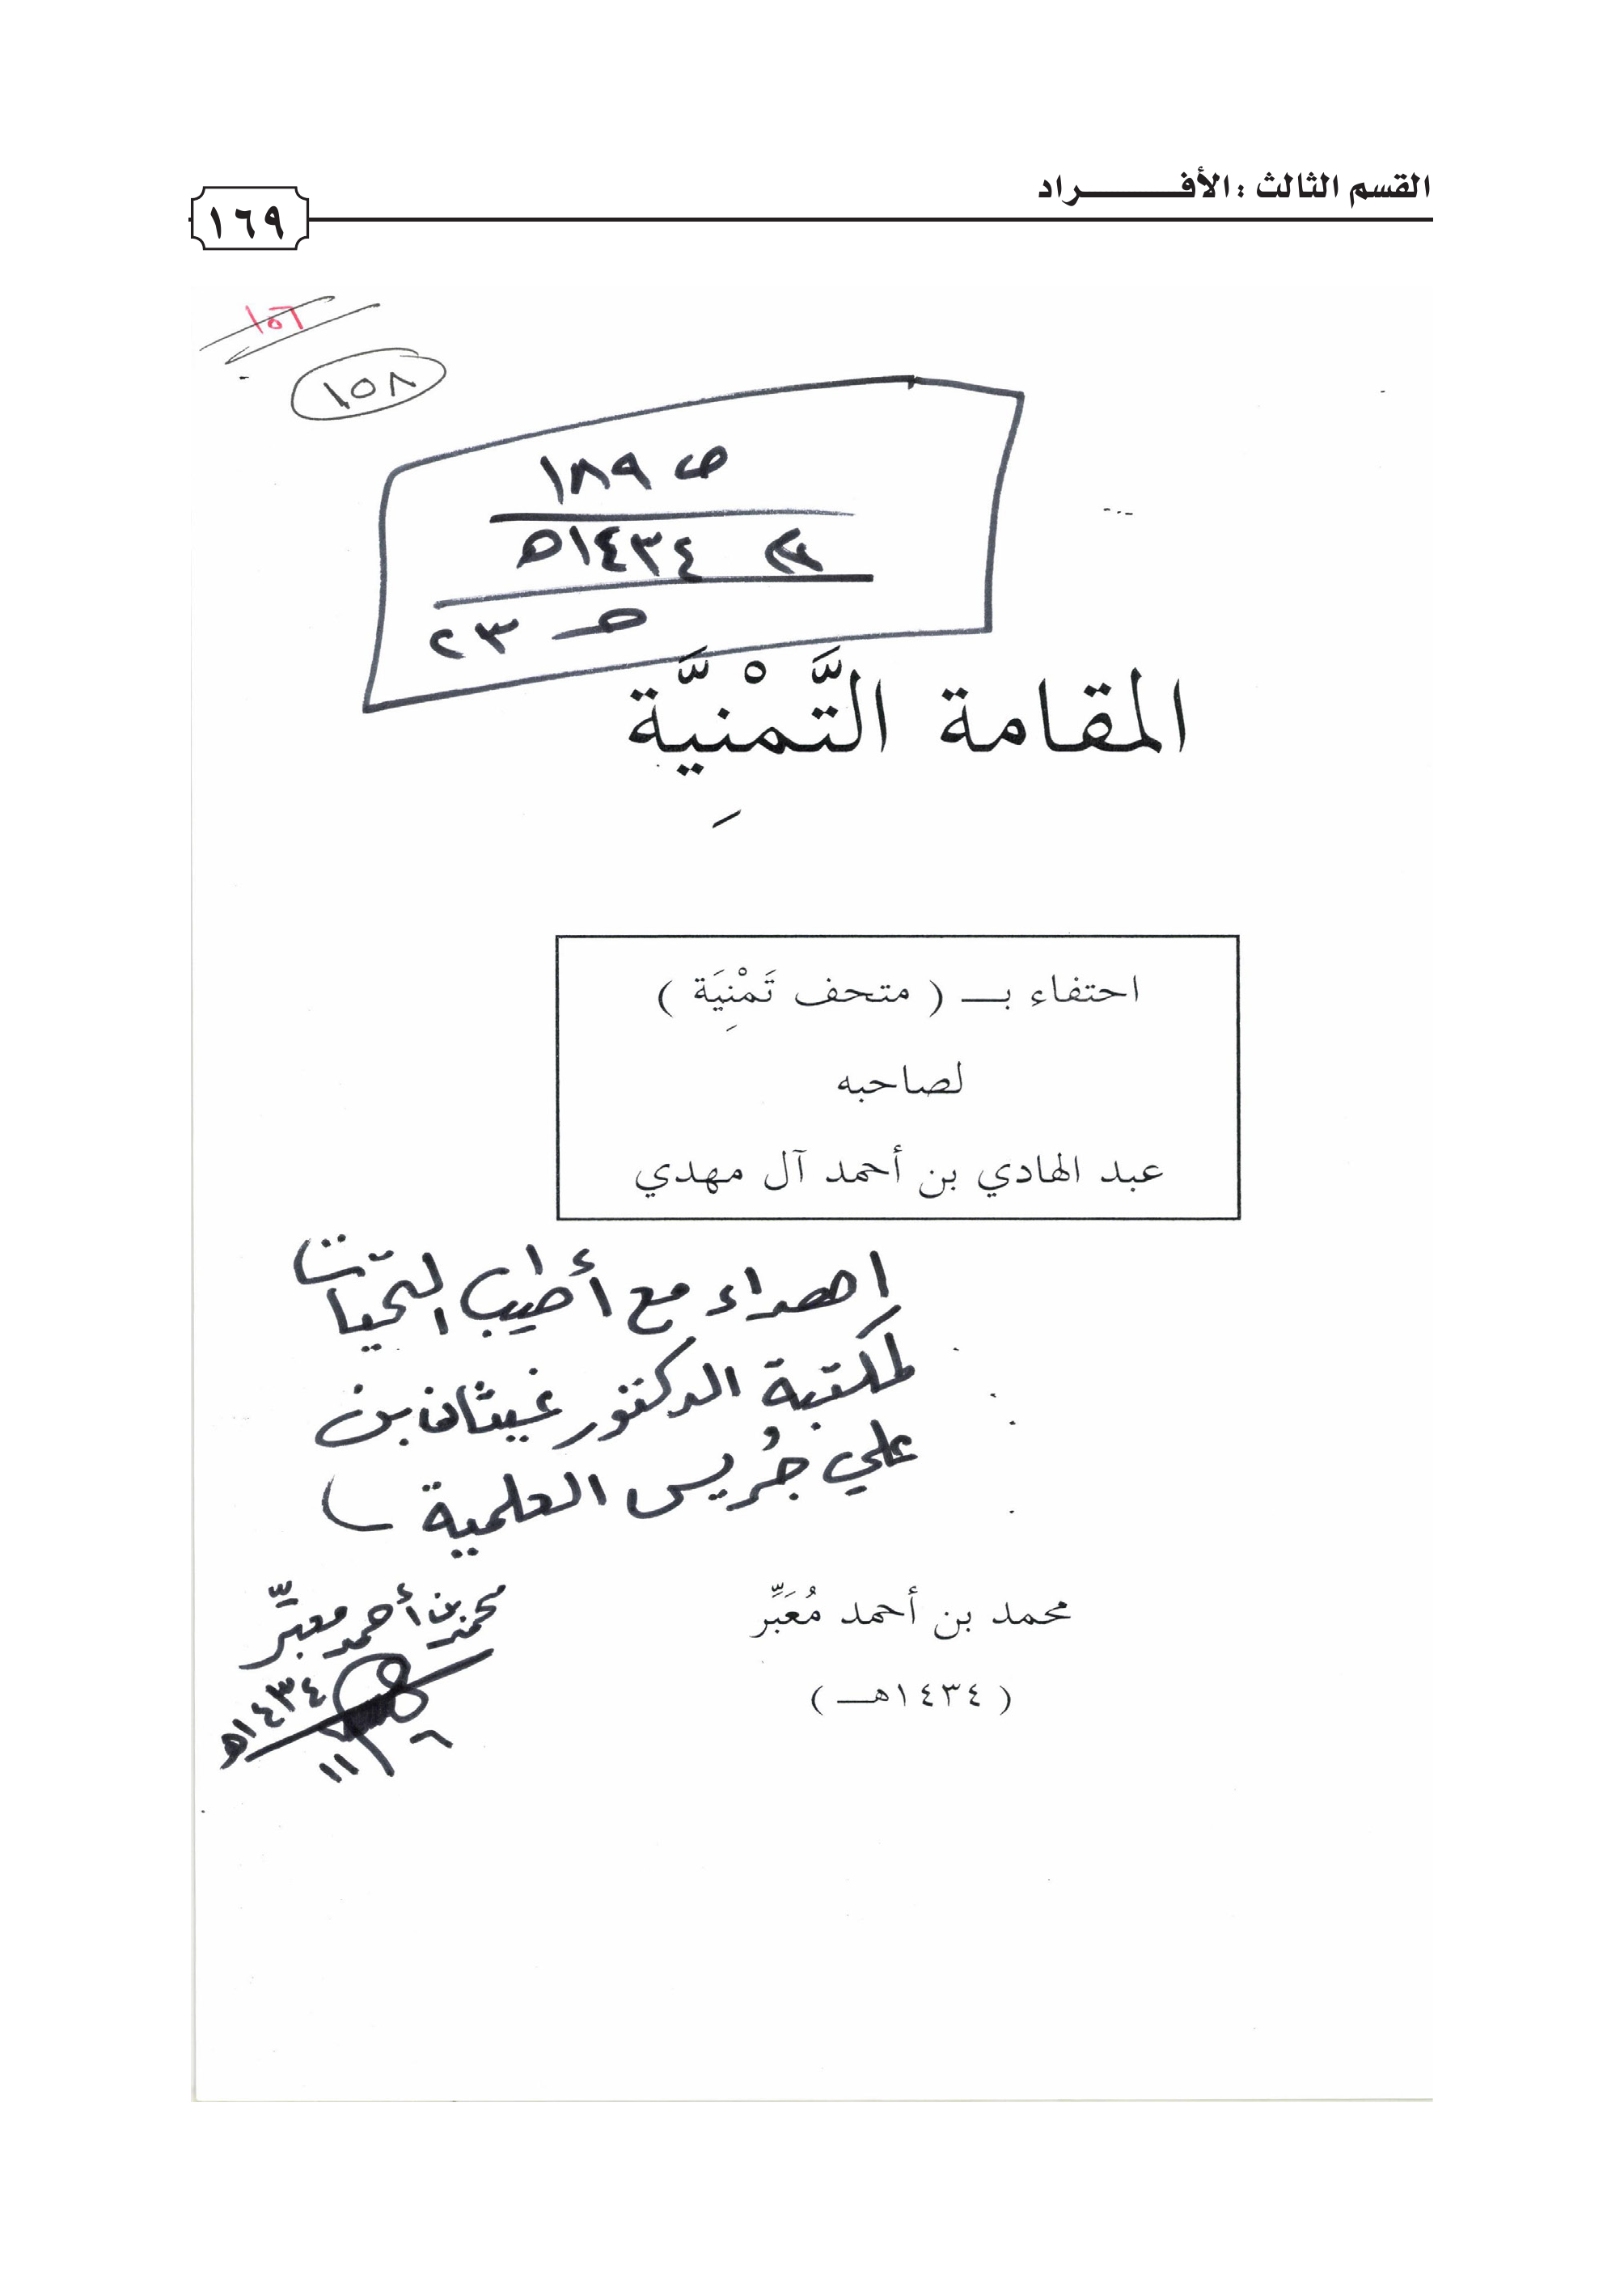 القسم الثالث : الأفـــــــــراد
١٦٩
١٥٦
١٥٨
ص ١٨٩
١٤٣٤هـ
٢٣
المقامة التَّمْنِيَّة
احتفاء بـــ ( متحف تَمْنِيَة )
لصاحبه
عبد الهادي بن أحمد آل مهدي
اهداء مع أطيب التحيّات
لمكتبة الدكتور غيثان بن
علي جُريس العلمية )
محمد بن أحمد مُعَبِّر
( ١٤٣٤هـــ )
محمد بن أحمد معبِّر
١٤٣٤هـ
١١/٦